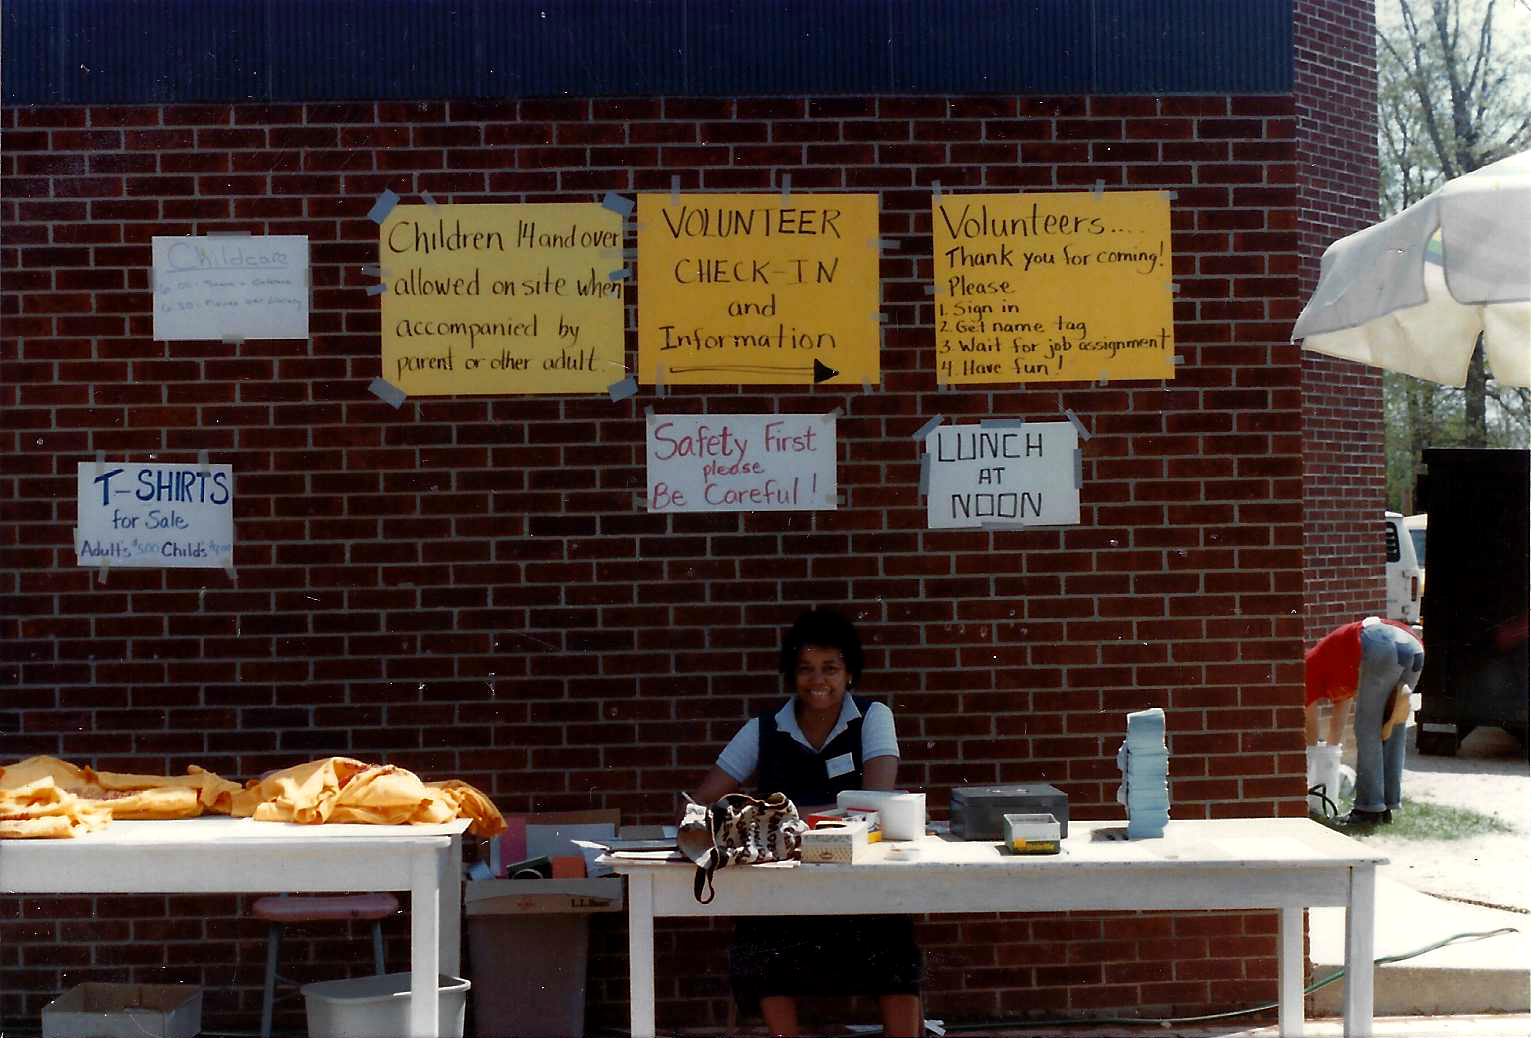 Childcare
Children 14 and over
allowed on site when
accompanied by
parent or other adult.
VOLUNTEER
CHECK-IN
and
Information
Volunteers....
Thank you for coming!
Please
1. Sign in
2. Get name tag
3. Wait for job assignment
4. Have fun!
T-SHIRTS
for Sale
Adult's $5.00 Child's
Safety First
please
Be Careful!
LUNCH
AT
NOON
L.L.Bean